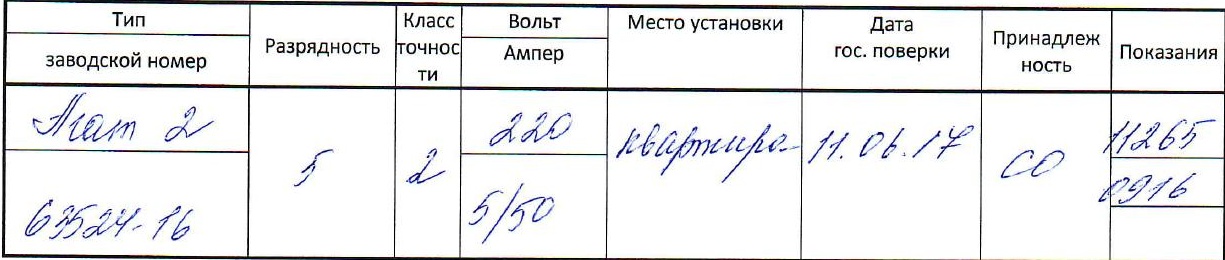 Тип
заводской номер
Разрядность
Класс
точнос
ти
Вольт
Ампер
Место установки
Дата
гос. поверки
Принадлеж
ность
Показания
Агат 2
63524-16
5
2
220
5/50
квартира
11.06.17
СО
11265
0916